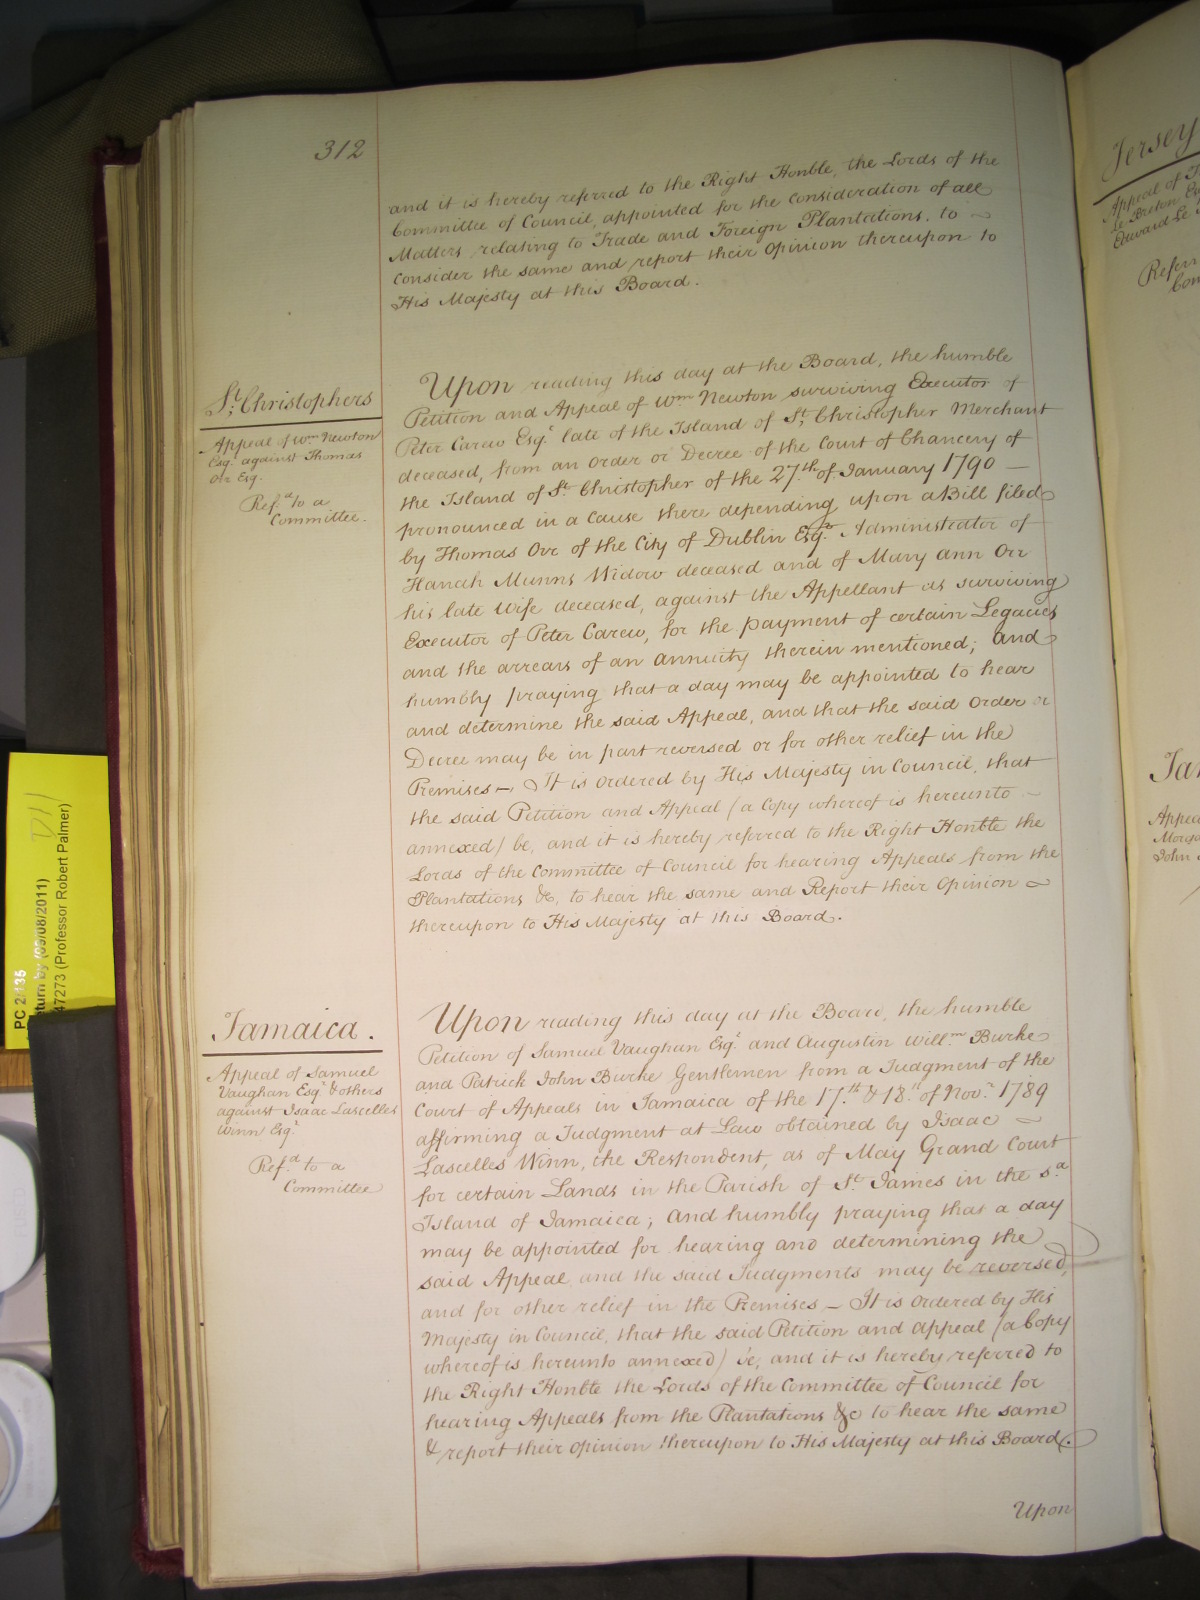 312
and it is hereby referred to the Right Honble, the Lords of the
Committee of Council, appointed for the Consideration of all
Matters relating to Trade and Foreign Plantations, to
Consider the same and report their Opinion thereupon to
His Majesty at this Board.
St. Christophers
Appeal of Wm Newton
Esqr. against Thomas
Orr Esq.
Refd. to a
Committee.
Upon reading this day at the Board, the humble
Petition and Appeal of Wm Newton surviving Executor of
Peter Carew Esqr. late of the Island of St. Christopher Merchant
deceased, from an Order or Decree of the Court of Chancery of
the Island of St. Christopher of the 27th. of January 1790 —
pronounced in a Cause there depending upon a Bill filed
by Thomas Orr of the City of Dublin Esqr. Administrator of
Hanah Munns Widow deceased and of Mary Ann Orr
his late Wife deceased, against the Appellant as surviving
Executor of Peter Carew, for the payment of certain Legacies
and the arrears of an Annuity therein mentioned; And
humbly praying that a day may be appointed to hear
and determine the said Appeal, and that the said Order or
Decree may be in part reversed or for other relief in the
Premises —, It is ordered by His Majesty in Council, that
the said Petition and Appeal (a Copy whereof is hereunto
annexed) be, and it is hereby referred to the Right Honble the
Lords of the Committee of Council for hearing Appeals from the
Plantations &c, to hear the same and Report their Opinion
thereupon to His Majesty at this Board.
Jamaica.
Appeal of Samuel
Vaughan Esqr. & others
against Isaac Lascelles
Winn Esqr.
Refd. to a
Committee
Upon reading this day at the Board, the humble
Petition of Samuel Vaughan Esqr. and Augustin Willm. Burke
and Patrick John Burke Gentlemen from a Judgment of the
Court of Appeals in Jamaica of the 17th. & 18th. of Novr. 1789
affirming a Judgment at Law obtained by Isaac
Lascelles Winn, the Respondent, as of May Grand Court
for certain Lands in the Parish of St. James in the sd.
Island of Jamaica; And humbly praying that a day
may be appointed for hearing and determining the
said Appeal, and the said Judgments may be reversed,
and for other relief in the Premises — It is Ordered by His
Majesty in Council, that the said Petition and Appeal (a Copy
whereof is hereunto annexed) be, and it is hereby referred to
the Right Honble the Lords of the Committee of Council for
hearing Appeals from the Plantations &c to hear the same
& report their Opinion thereupon to His Majesty at this Board.
Upon
Jersey
Appeal of
Le Breton
Edward Le
Appea
Morga
John
PC 2/135
(09/08/2011)
47273 (Professor Robert Palmer)
D11